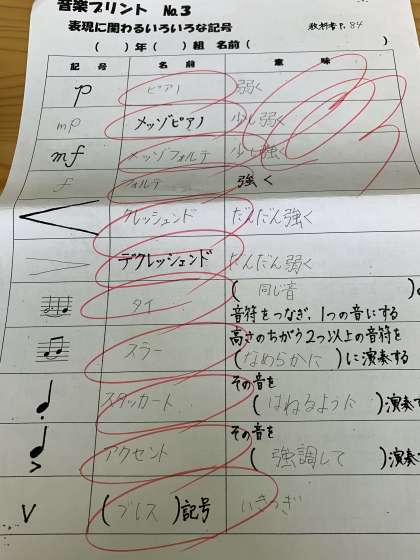 音楽プリント No.3
表現に関わるいろいろな記号 教科書P.84
( )年( )組 名前( )
記号 名前 意味
p ピアノ 弱く
mp メッゾピアノ 少し弱く
mf メッゾフォルテ 少し強く
f フォルテ 強く
クレッシェンド だんだん強く
デクレッシェンド だんだん弱く
タイ ( 同じ音 )の
音符をつなぎ、1つの音にする
スラー 高さのちがう2つ以上の音符を
(なめらかに)に演奏する
スタッカート その音を
(はねるように)演奏
アクセント その音を
(強調して)演奏
V (ブレス)記号 いきつぎ